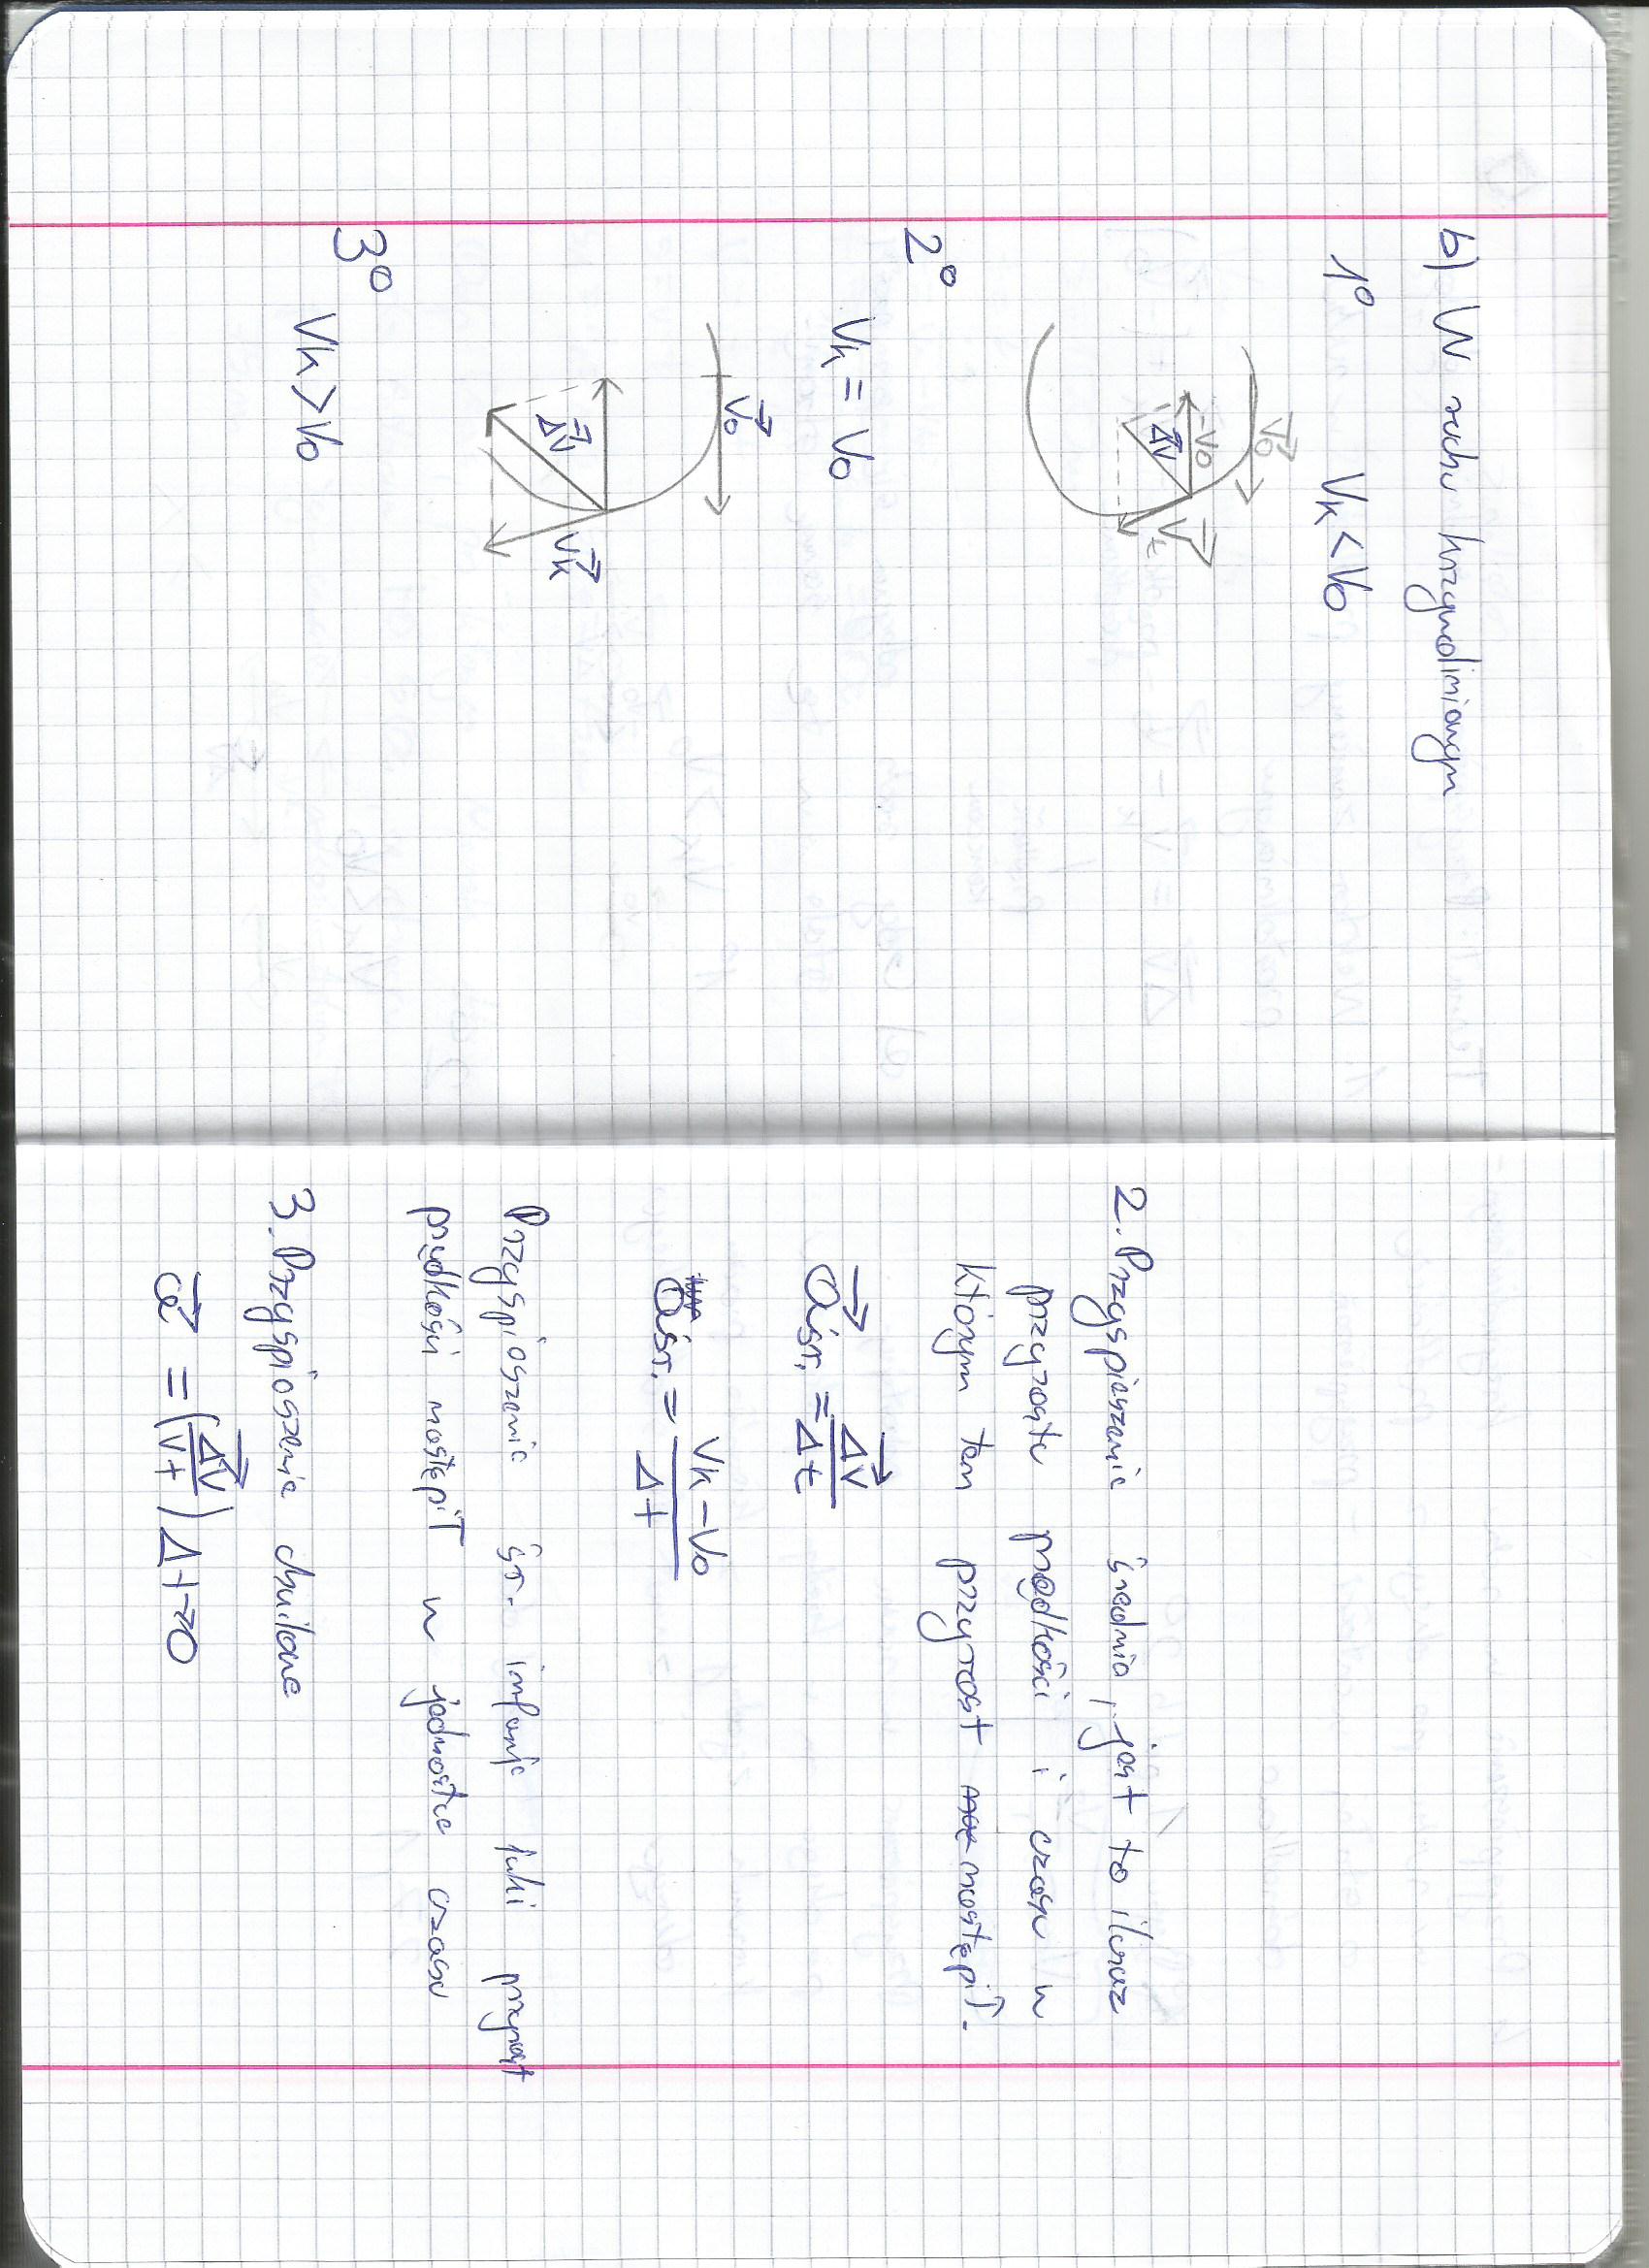 b) W ruchu krzywoliniowym
1° Vk < V0
V0
-V0
ΔV
Vk
2° Vk = V0
V0
ΔV
Vk
3° Vk > V0
2. Przyspieszenie średnie, jest to iloraz
przyrostu prędkości i czasu w
którym ten przyrost nastąpił.
aśr. = ΔV / Δt
aśr. = Vk - V0 / Δt
Przyspieszenie śr. infomuje jaki przyrost
prędkości nastąpił w jednostce czasu
3. Przyspieszenie chwilowe
a = (ΔV / Vt) Δt→0